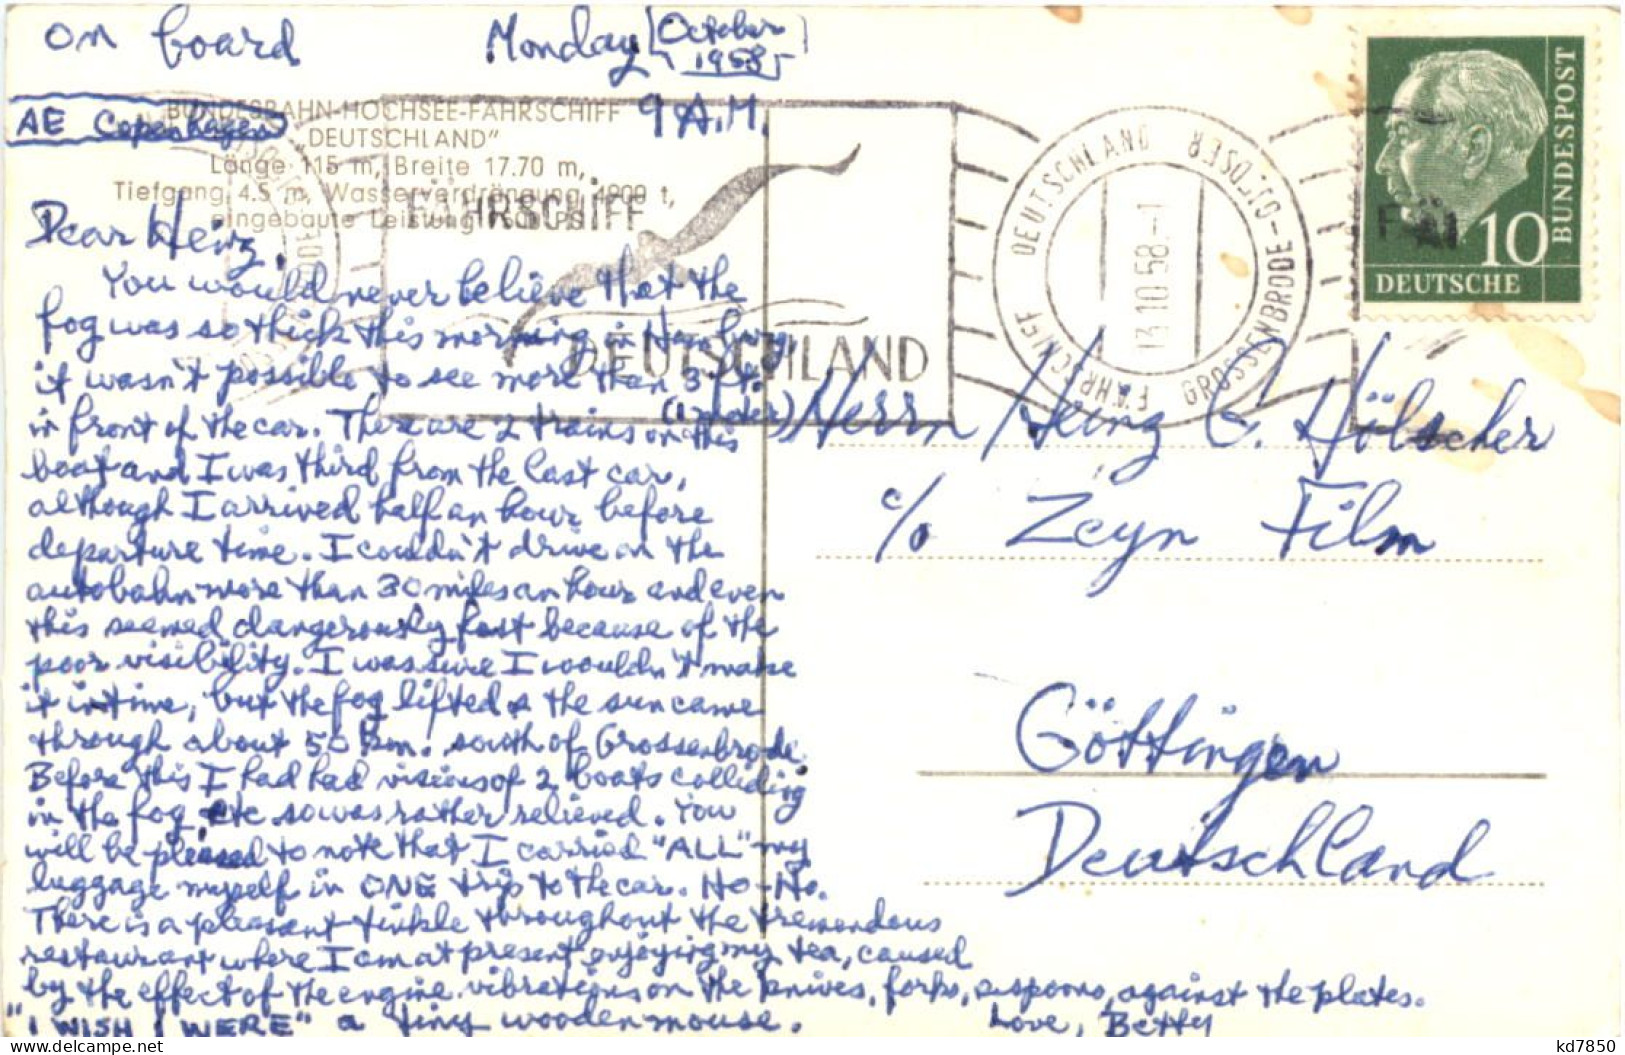 on board
Monday [October 1958]
9 A.M.
AE Copenhagen
BUNDESBAHN-HOCHSEE-FÄHRSCHIFF
„DEUTSCHLAND"
Länge 115 m, Breite 17.70 m,
Tiefgang 4.5 m, Wasserverdrängung t,
eingebaute Leistung
FÄHRSCHIFF
DEUTSCHLAND
FÄHRSCHIFF DEUTSCHLAND
GROSSENBRODE
13.10.58.-1
BUNDESPOST
10
DEUTSCHE
Dear Heinz,
You would never believe that the
fog was so thick this morning in Hamburg,
it wasn't possible to see more than 3 ft.
(1 meter)
in front of the car. There are 2 trains on this
boat and I was third from the last car,
although I arrived half an hour before
departure time. I couldn't drive on the
autobahn more than 30 miles an hour and even
this seemed dangerously fast because of the
poor visibility. I was sure I wouldn't make
it in time, but the fog lifted & the sun came
through about 50 km. south of Grossenbrode.
Before this I had had visions of 2 boats colliding
in the fog, etc. so was rather relieved. You
will be pleased to note that I carried "ALL" my
luggage myself in ONE trip to the car. Ho-Ho.
There is a pleasant tinkle throughout the tremendous
restaurant where I am at present enjoying my tea, caused
by the effect of the engine vibrations on the knives, forks, & spoons, against the plates.
"I WISH I WERE" a tiny wooden mouse.
Love, Betty
Herrn Heinz C. Hölscher
c/o Zeyn Film
Göttingen
Deutschland
kd7850